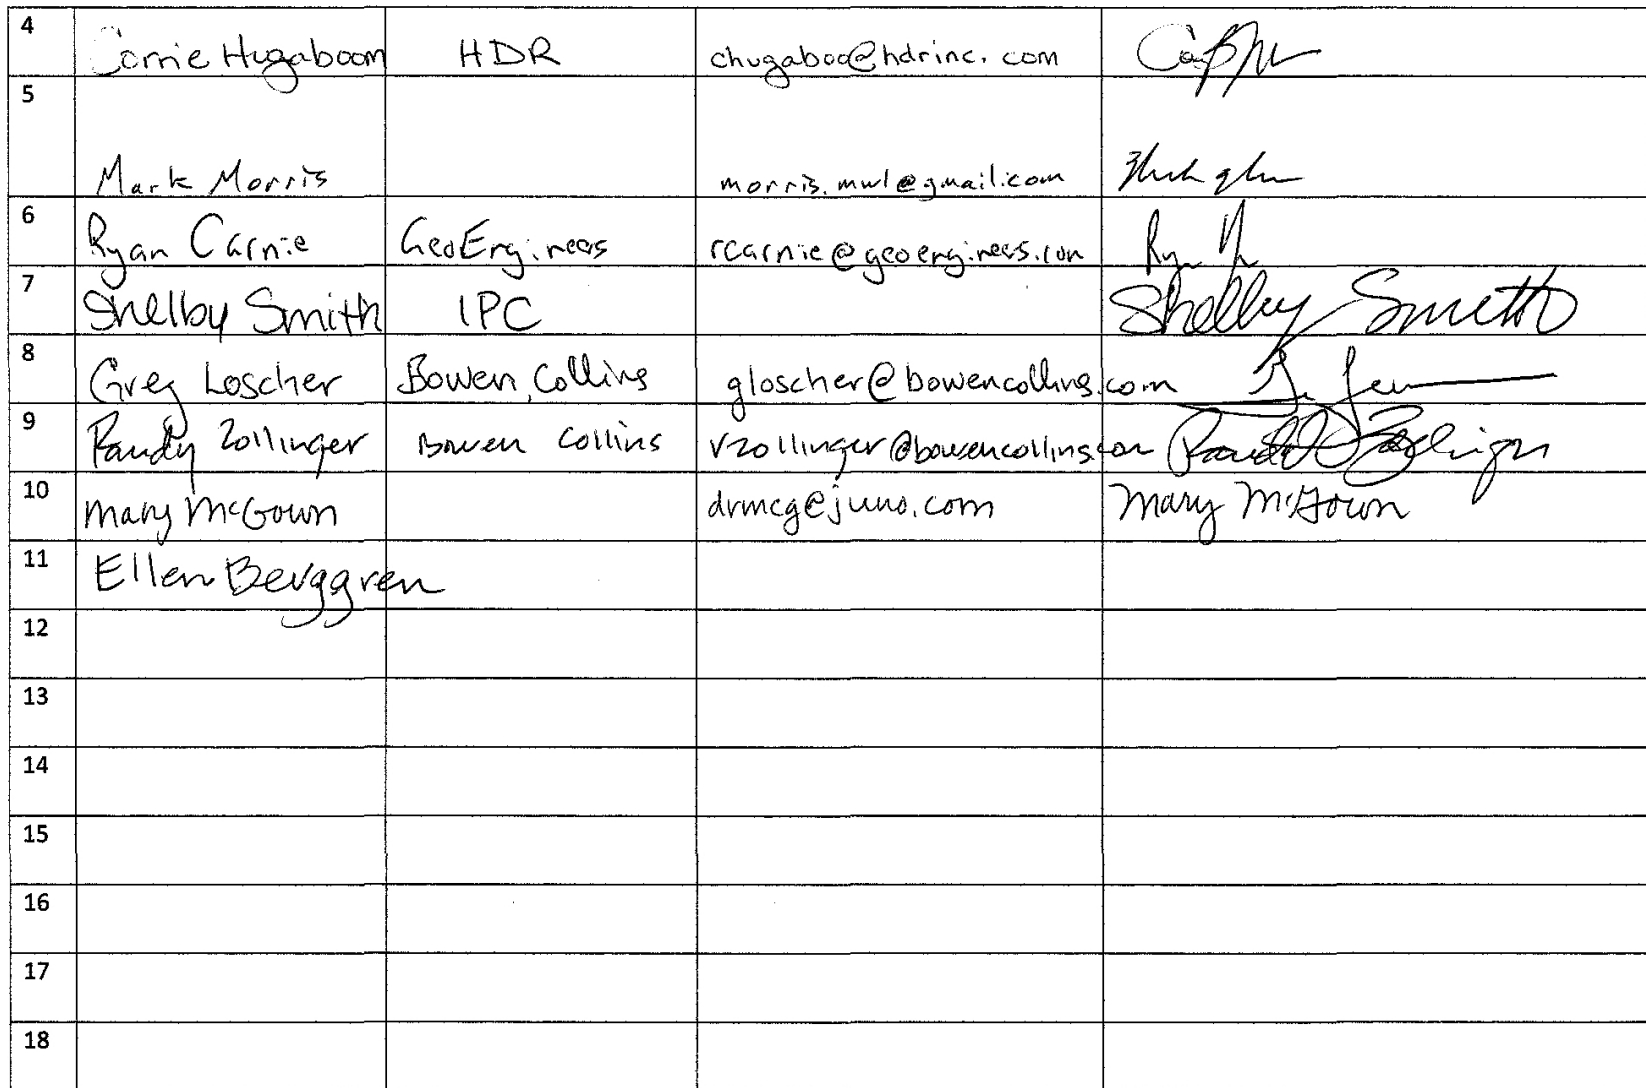 4 Corrie Hugaboom HDR chugaboo@hdrinc.com
5
Mark Morris morris.mwl@gmail.com
6 Ryan Carnie GeoEngineers rcarnie@geoengineers.com
7 Shelby Smith IPC Shelby Smith
8 Greg Loscher Bowen, Collins gloscher@bowencollins.com
9 Randy Zollinger Bowen Collins rzollinger@bowencollins.com
10 Mary McGown drmcg@juno.com Mary McGown
11 Ellen Berggren
12
13
14
15
16
17
18